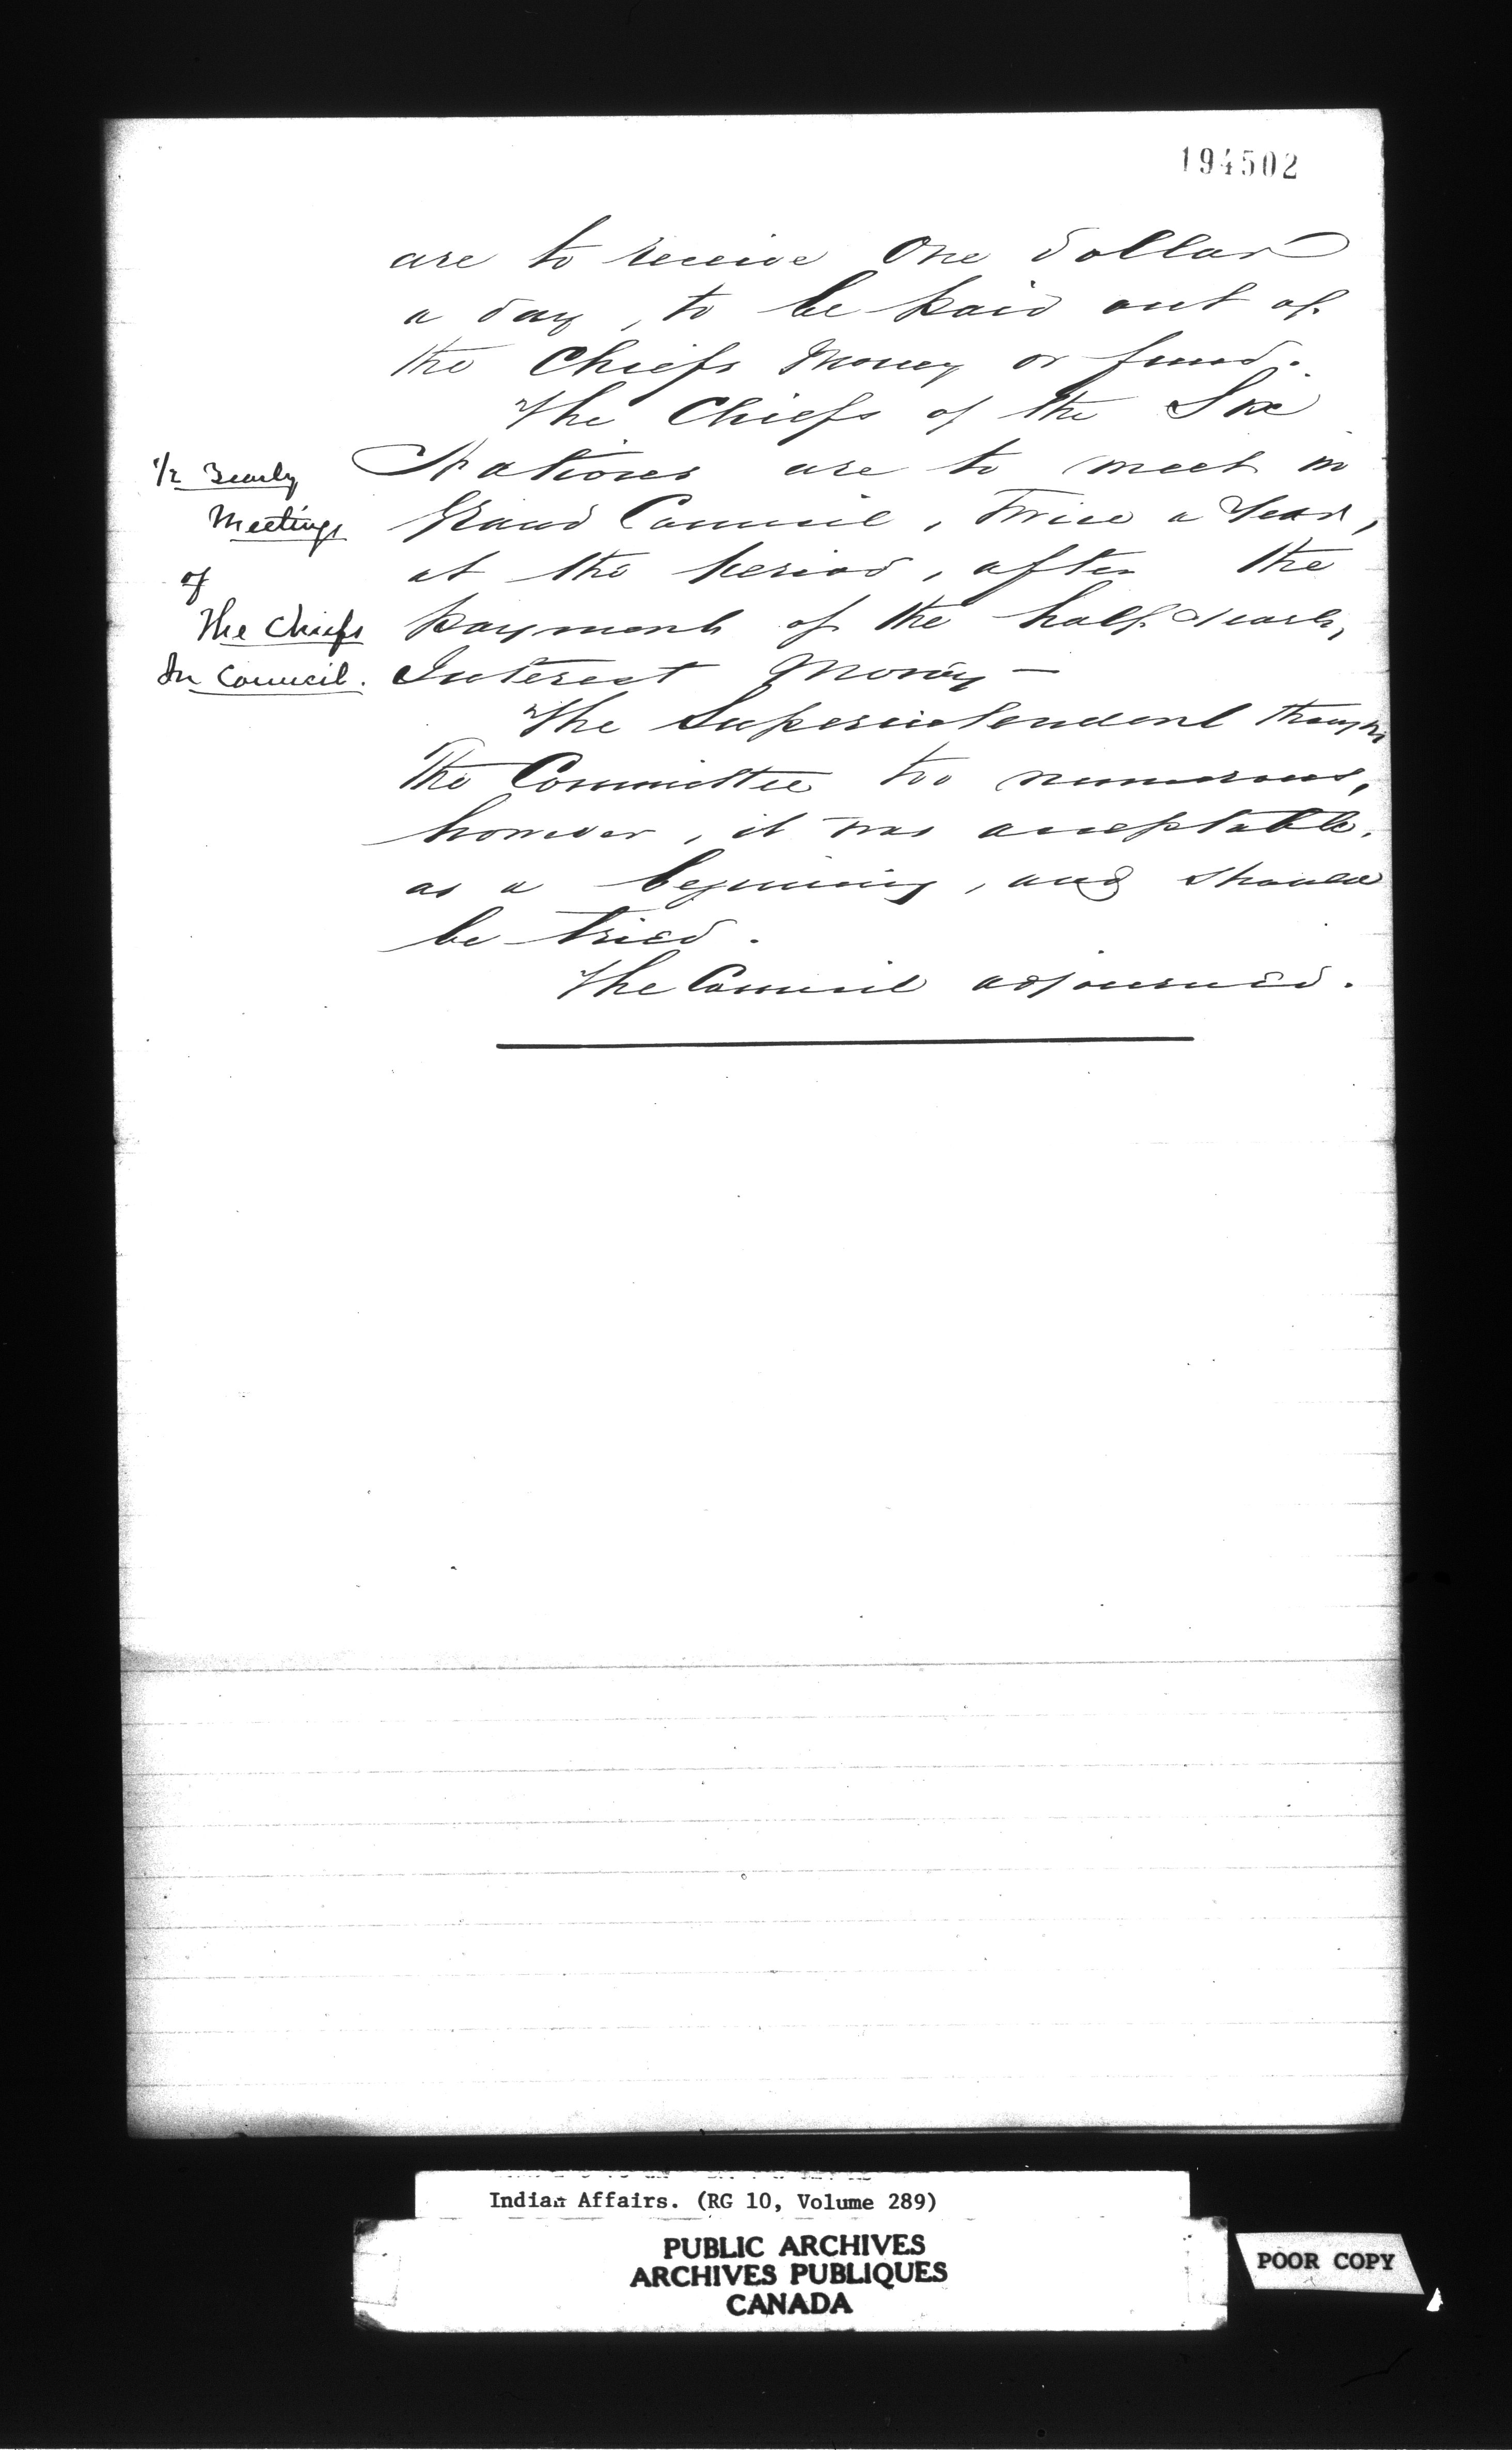 194502
are to receive One dollar
a day, to be paid out of
the Chiefs Money or fund.
The Chiefs of the Six
Nations are to meet in
Grand Council, Twice a Year,
at the period, after the
payment of the half Yearly,
Interest Money —
The Superintendent thought
The Committee too numerous,
however, it was acceptable,
as a beginning, and should
be tried.
The Council adjourned.
1/2 Yearly
Meetings
of
The Chiefs
In Council.
Indian Affairs. (RG 10, Volume 289)
PUBLIC ARCHIVES
ARCHIVES PUBLIQUES
CANADA
POOR COPY